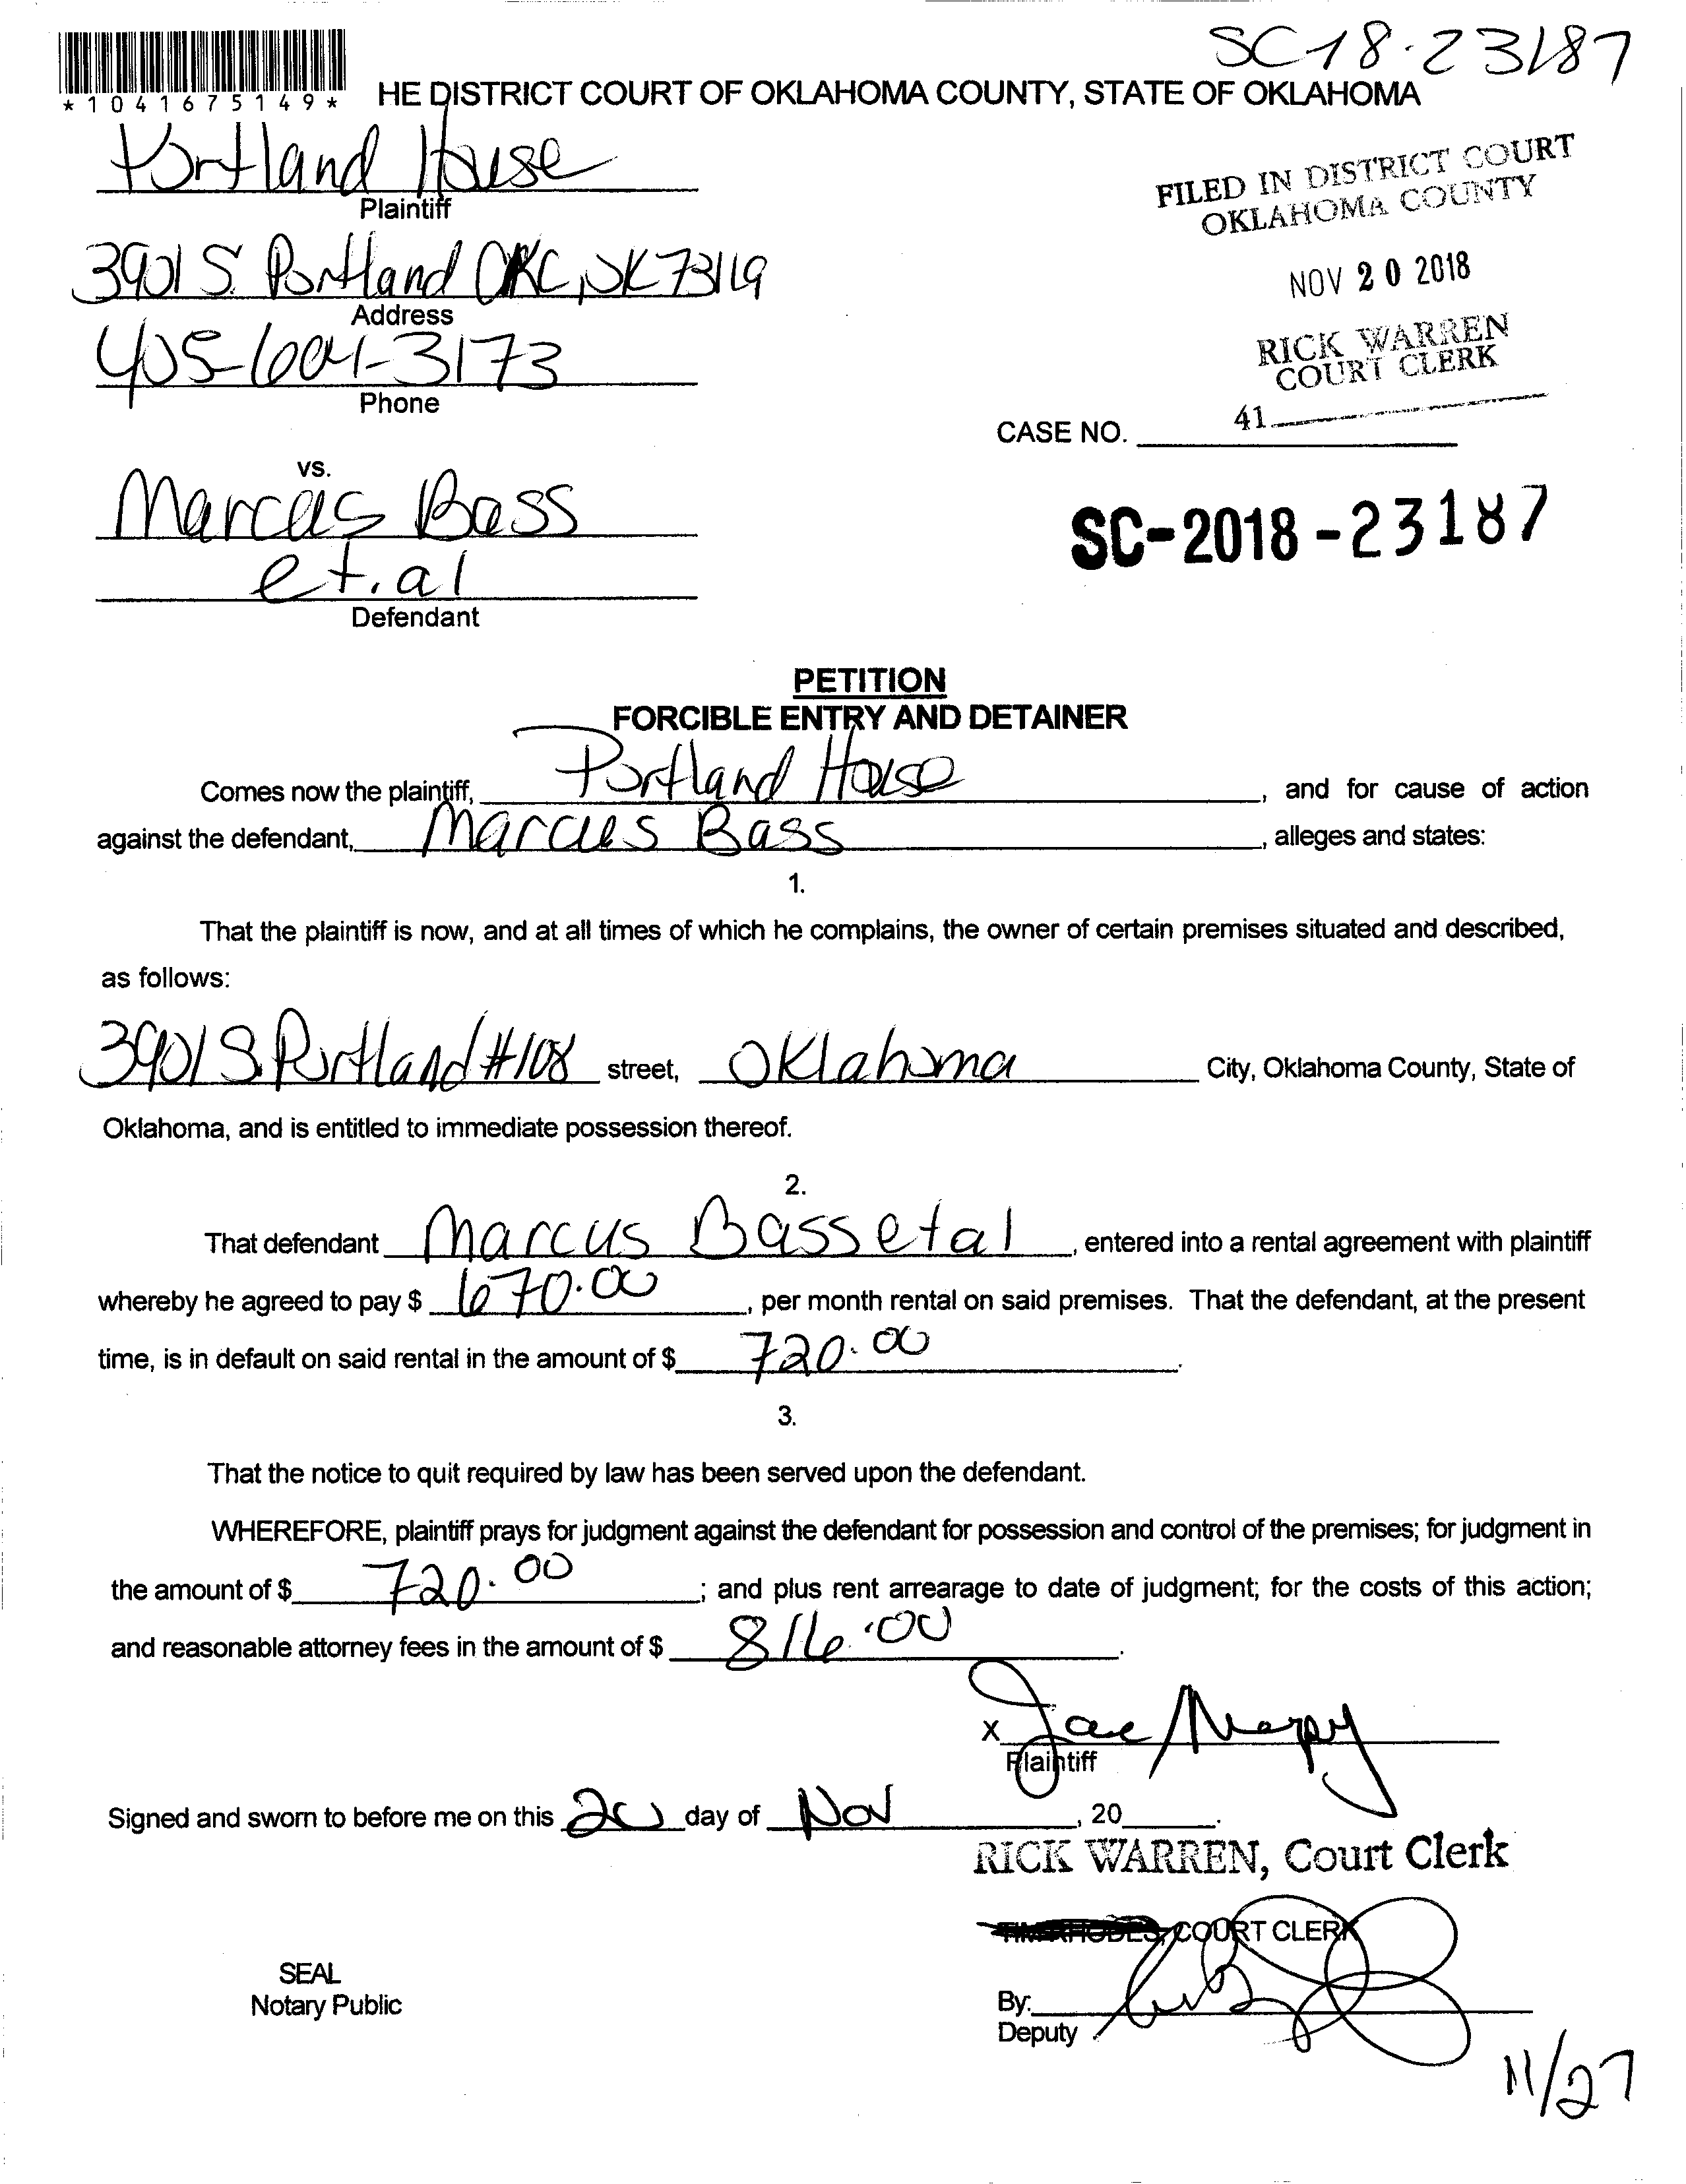 SC18-23187
*1041675149*
HE DISTRICT COURT OF OKLAHOMA COUNTY, STATE OF OKLAHOMA
Portland House
Plaintiff
FILED IN DISTRICT COURT
OKLAHOMA COUNTY
3901 S. Portland OKC, OK 73119
Address
NOV 20 2018
405-604-3173
Phone
RICK WARREN
COURT CLERK
41
CASE NO.
vs.
Marcus Bass
et. al
Defendant
SC-2018-23187
PETITION
FORCIBLE ENTRY AND DETAINER
Comes now the plaintiff, Portland House, and for cause of action
against the defendant, Marcus Bass, alleges and states:
1.
That the plaintiff is now, and at all times of which he complains, the owner of certain premises situated and described,
as follows:
3901 S. Portland #108 street, Oklahoma City, Oklahoma County, State of
Oklahoma, and is entitled to immediate possession thereof.
2.
That defendant Marcus Bass et al, entered into a rental agreement with plaintiff
whereby he agreed to pay $ 670.00, per month rental on said premises. That the defendant, at the present
time, is in default on said rental in the amount of $ 720.00.
3.
That the notice to quit required by law has been served upon the defendant.
WHEREFORE, plaintiff prays for judgment against the defendant for possession and control of the premises; for judgment in
the amount of $ 720.00; and plus rent arrearage to date of judgment; for the costs of this action;
and reasonable attorney fees in the amount of $ 816.00.
X
Plaintiff
Signed and sworn to before me on this 20 day of Nov, 20.
RICK WARREN, Court Clerk
COURT CLERK
SEAL
Notary Public
By:
Deputy
11/27